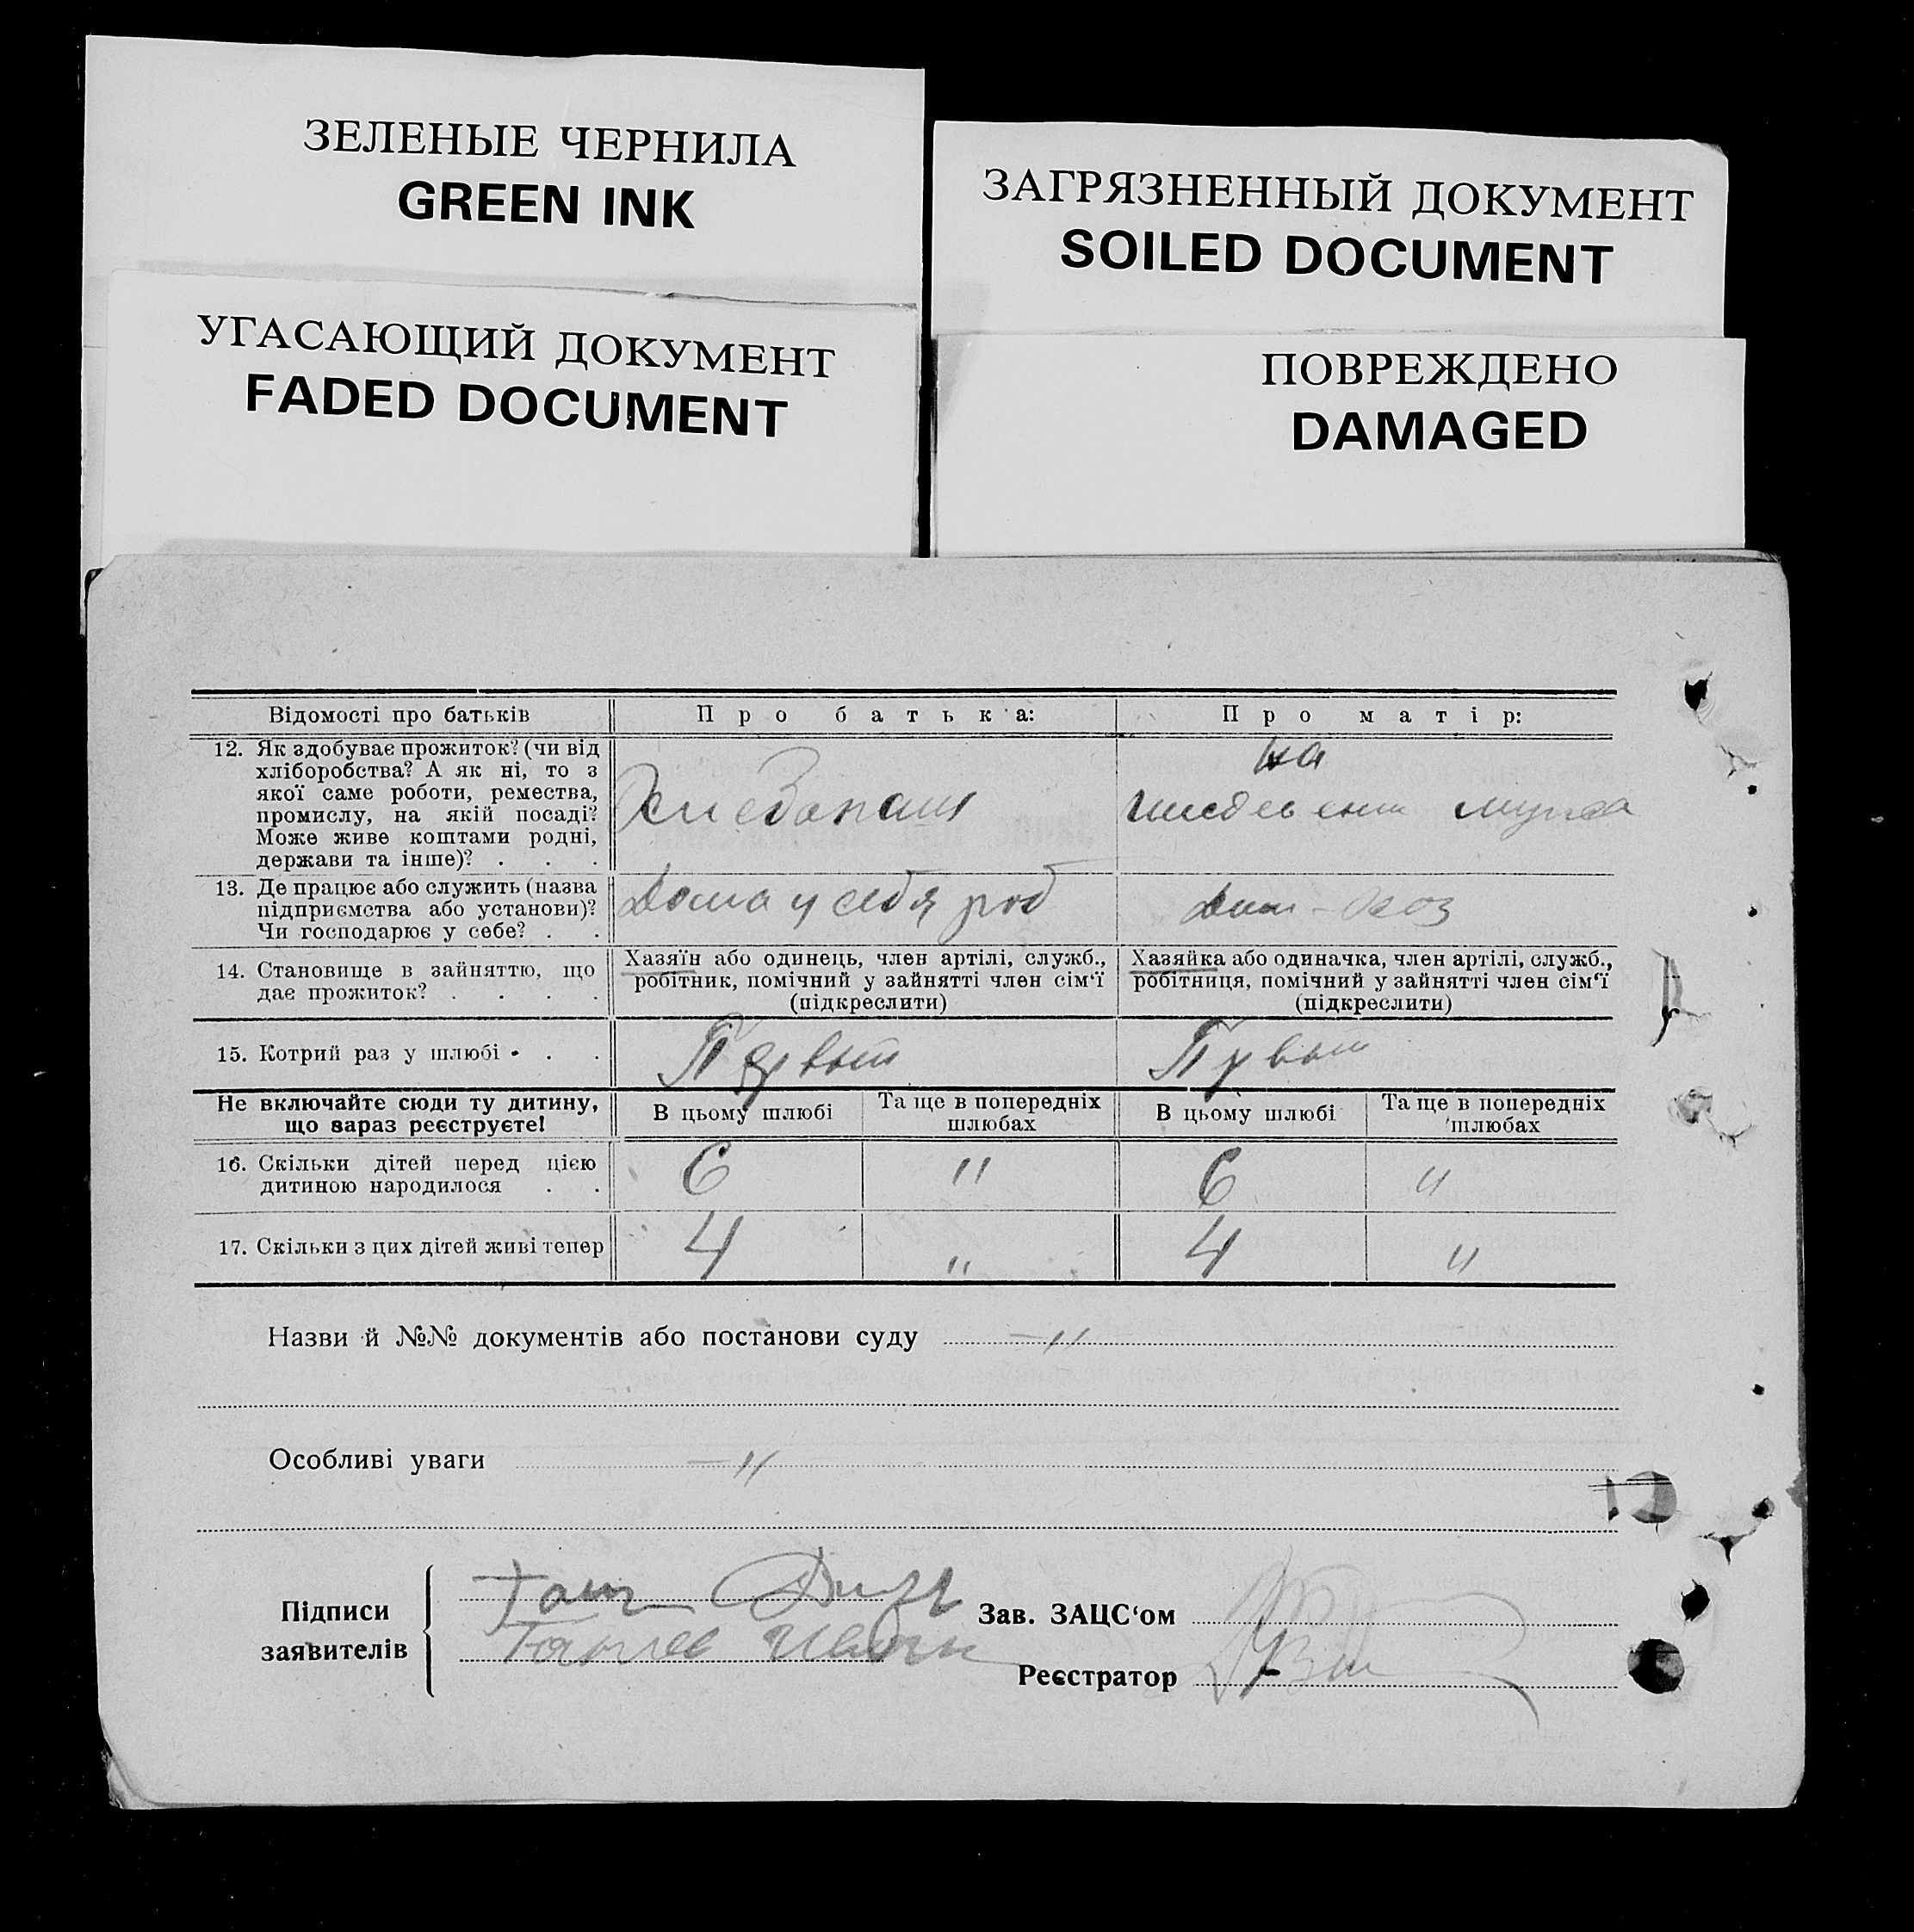 ЗЕЛЕНЫЕ ЧЕРНИЛА
GREEN INK
ЗАГРЯЗНЕННЫЙ ДОКУМЕНТ
SOILED DOCUMENT
УГАСАЮЩИЙ ДОКУМЕНТ
FADED DOCUMENT
ПОВРЕЖДЕНО
DAMAGED
Відомості про батьків
Про батька:
Про матір:
12. Як здобуває прожиток? (чи від
хліборобства? А як ні, то з
якої саме роботи, ремества,
промислу, на якій посаді?
Може живе коштами родні,
держави та інше)? . . .
на
мужа
13. Де працює або служить (назва
підприємства або установи)?
Чи господарює у себе? . .
Дома у себя роб
14. Становище в зайняттю, що
дає прожиток? . . . .
Хазяїн або одинець, член артілі, служб.,
робітник, помічний у зайнятті член сім'ї
(підкреслити)
Хазяйка або одиначка, член артілі, служб.,
робітниця, помічний у зайнятті член сім'ї
(підкреслити)
15. Котрий раз у шлюбі . . .
Первый
Не включайте сюди ту дитину,
що зараз реєструєте!
В цьому шлюбі
Та ще в попередніх
шлюбах
В цьому шлюбі
Та ще в попередніх
шлюбах
16. Скільки дітей перед цією
дитиною народилося . .
6
"
6
"
17. Скільки з цих дітей живі тепер
4
"
4
"
Назви й №№ документів або постанови суду —"
Особливі уваги —"
Підписи
заявителів
Зав. ЗАЦС'ом
Реєстратор